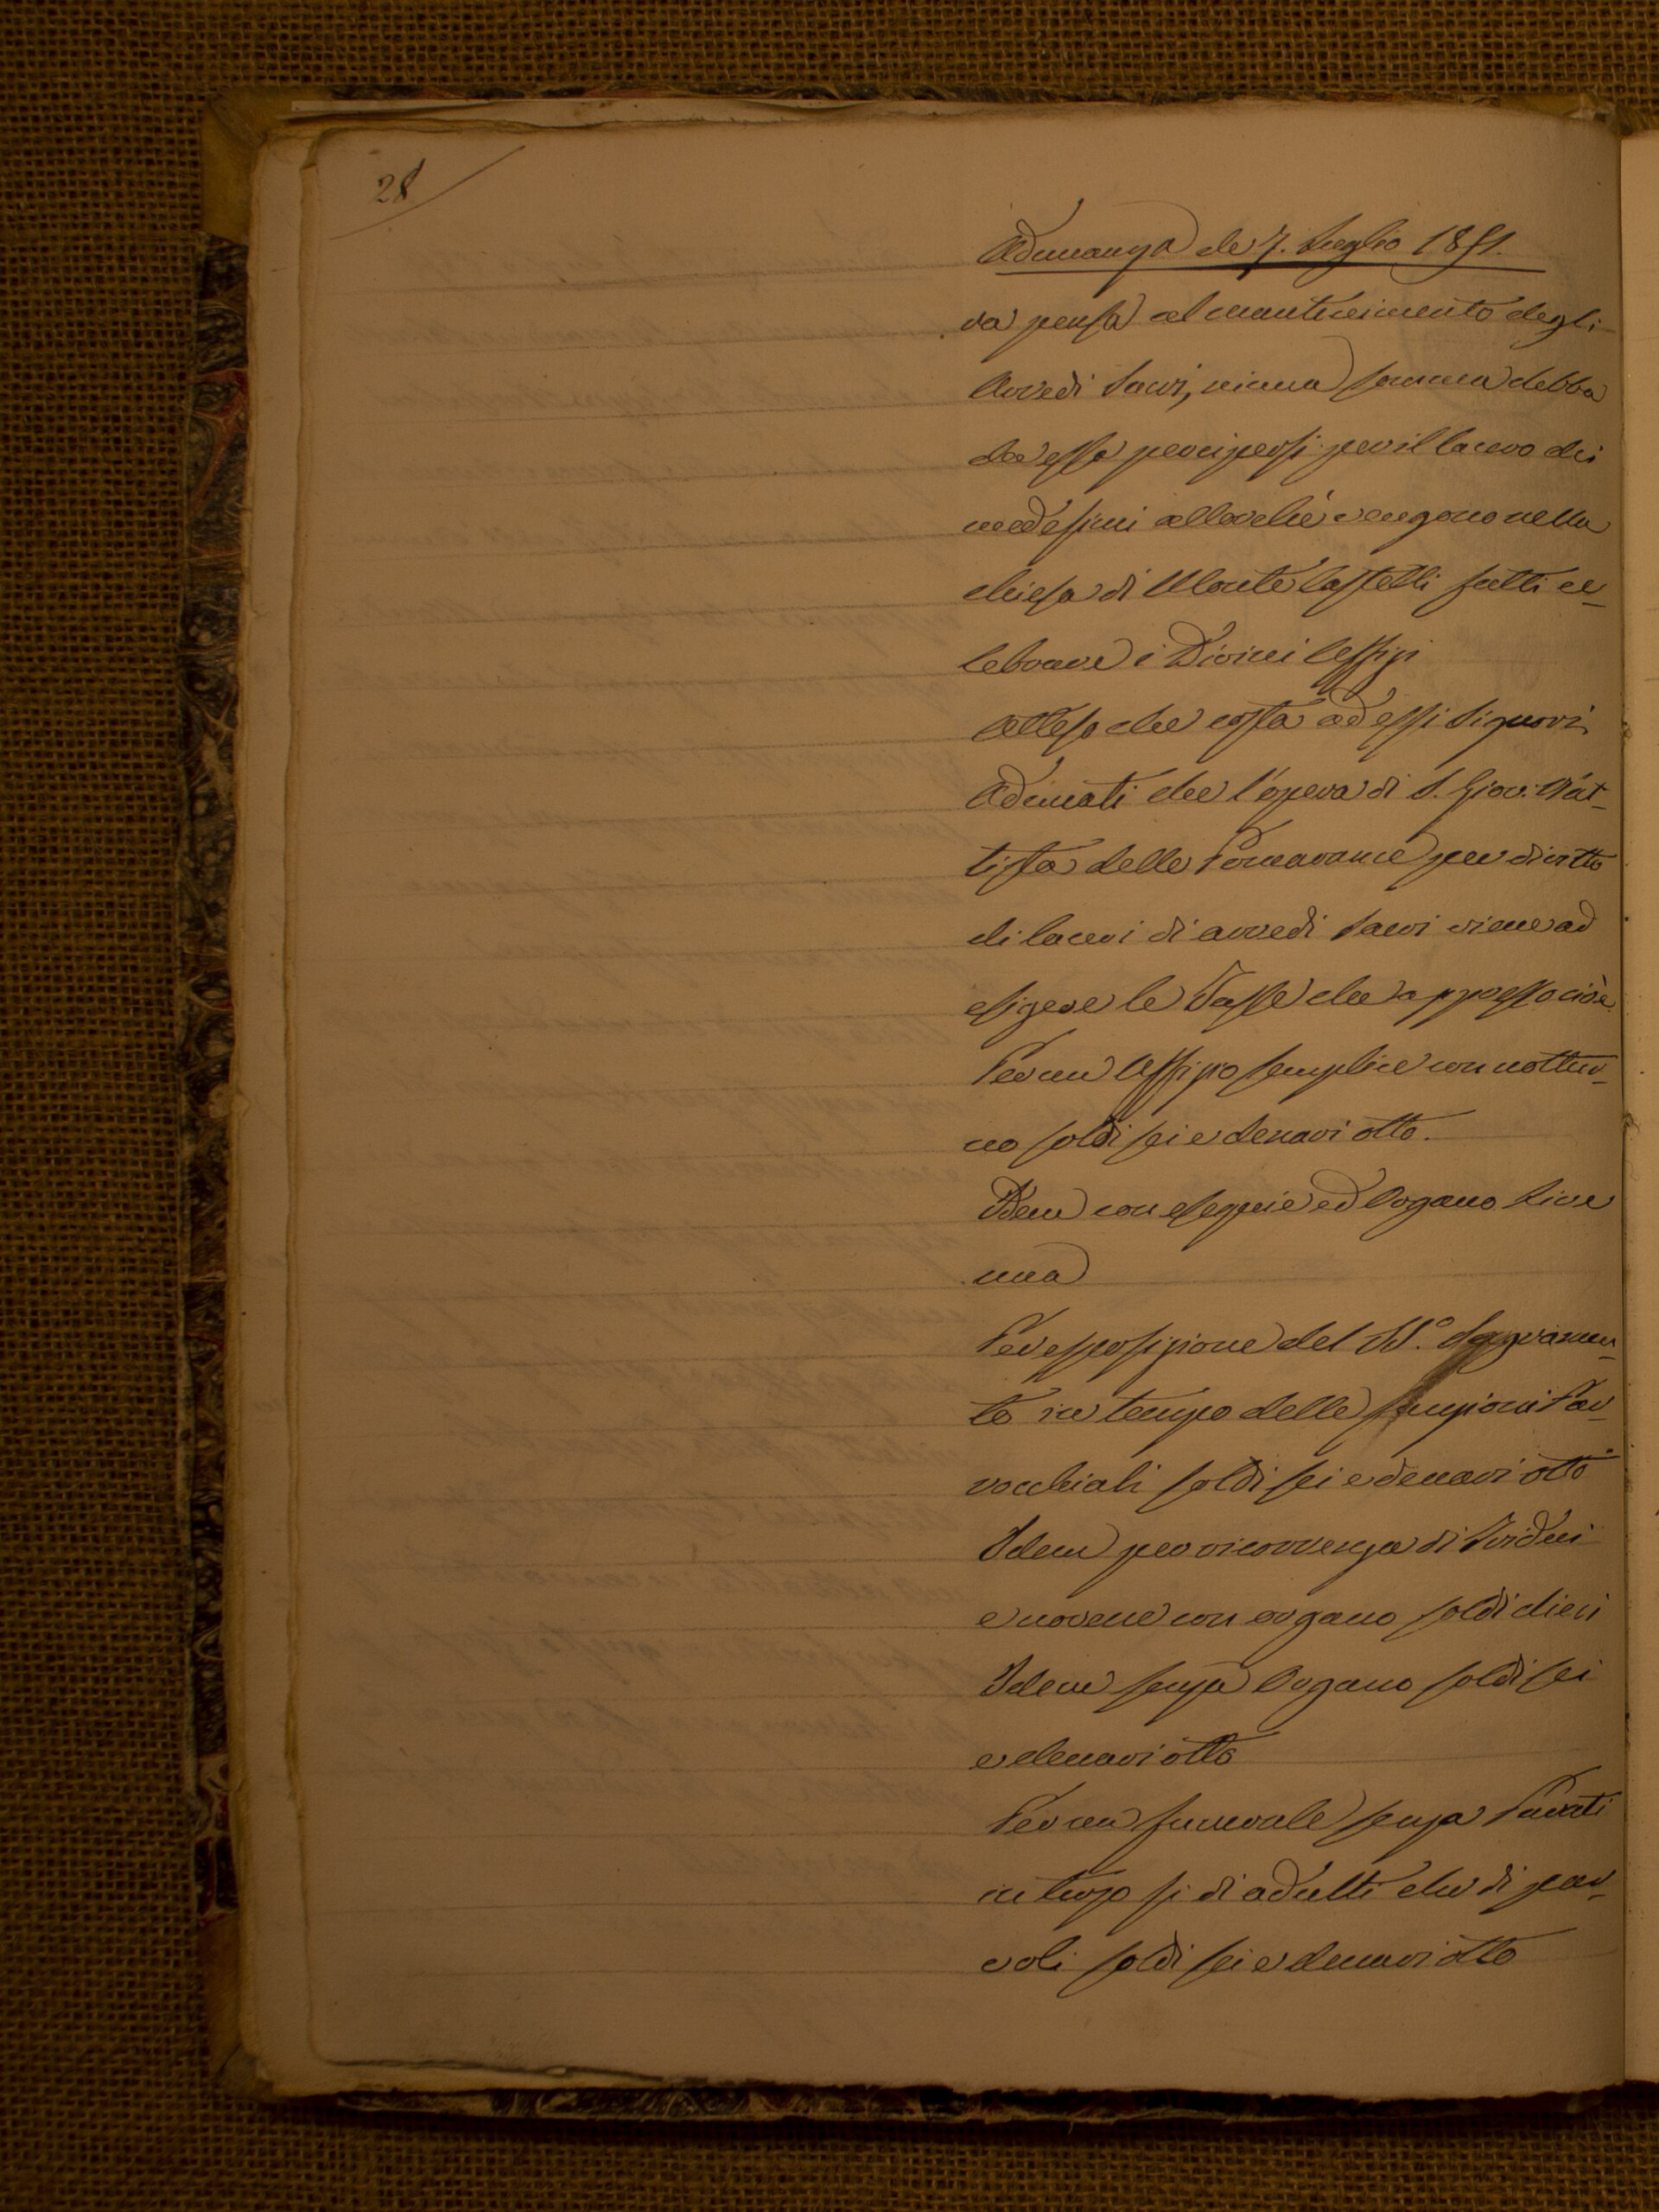 28
Adunanza de 7. Luglio 1851.
ra pensa al mantenimento degli
Arredi Sacri, niuna somma debba
da essa percipersi per il lacero dei
medesimi allorché vengono nella
chiesa di Monte Castelli fatti ce_
lebrare i Divini Uffizi
Atteso che costa ad essi Signori
Adunati che l'opera di S. Giov: Bat_
tista delle Pomarance per diritto
di laceri di arredi Sacri viene ad
esigere le Tasse che appresso cioè
Per un Uffizio semplice con nottur_
no soldi sei e denari otto.
Idem con esequie ed Organo Lire
una
Per esposizione del SS.º Sagramen_
to in tempo delle funzioni Par_
rocchiali soldi sei e denari otto
Idem per ricorrenza di Tridui
e novene con organo soldi dieci
Idem senza Organo soldi sei
e denari otto
Per un funerale senza Parati
in terzo si di adulti che di par_
voli soldi sei e denari otto